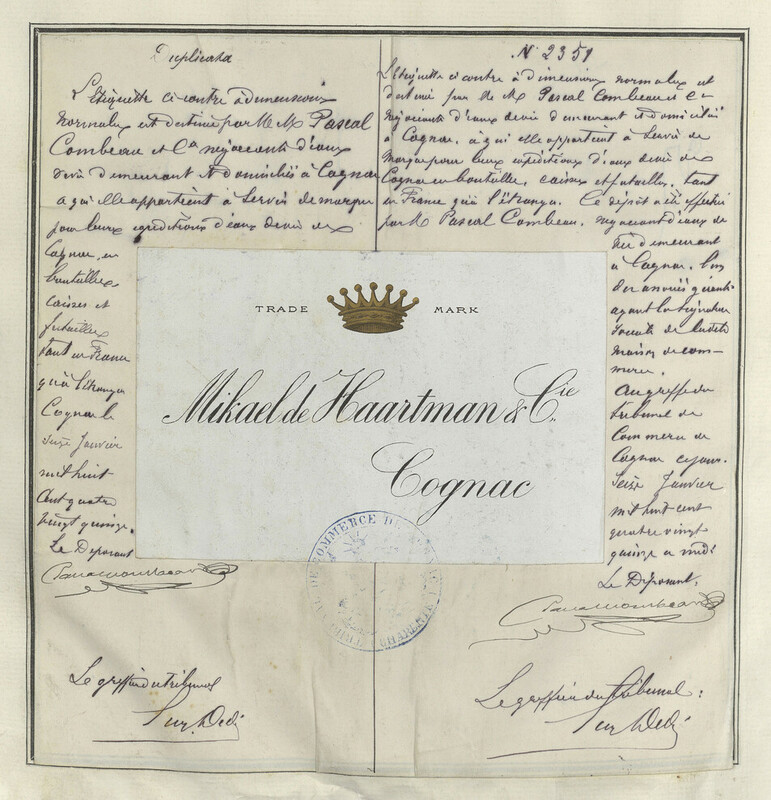 Duplicata
L'étiquette ci contre à dimensions
normales est destinée par M M Pascal
Combeau et Cie négociants d'eaux
devie demeurant et domiciliés à Cognac
a qui elle appartient à Servir de marque
pour leurs expéditions d'eaux devie de
Cognac, en
bouteilles
caisses et
futailles
tant en France
qu'à l'étranger
Cognac le
Seize Janvier
mil huit
Cent quatre
vingt quinze.
Le Déposant
Le greffier du Tribunal
N° 2351
L'étiquette ci contre à dimensions normales est
destinée par M M Pascal Combeau & Cie
négociants d'eaux devie demeurant et domiciliés
à Cognac, à qui elle appartient à Servir de
marque pour leurs expéditions d'eaux devie de
Cognac en bouteilles, caisses et futailles, tant
en France qu'à l'étranger. Ce dépôt a été effectué
par M Pascal Combeau, négociant d'eaux de
vie demeurant
à Cognac, l'un
des associés gérants
ayant la Signature
Sociale de ladite
maison de com-
merce.
Au greffe du
Tribunal de
Commerce de
Cognac ce jour.
Seize Janvier
mil huit cent
quatre vingt
quinze a midi
Le Déposant.
Le greffier du Tribunal:
TRADE MARK
Mikael de Haartman & Cie.
Cognac
DE COMMERCE DE
CHARENTE